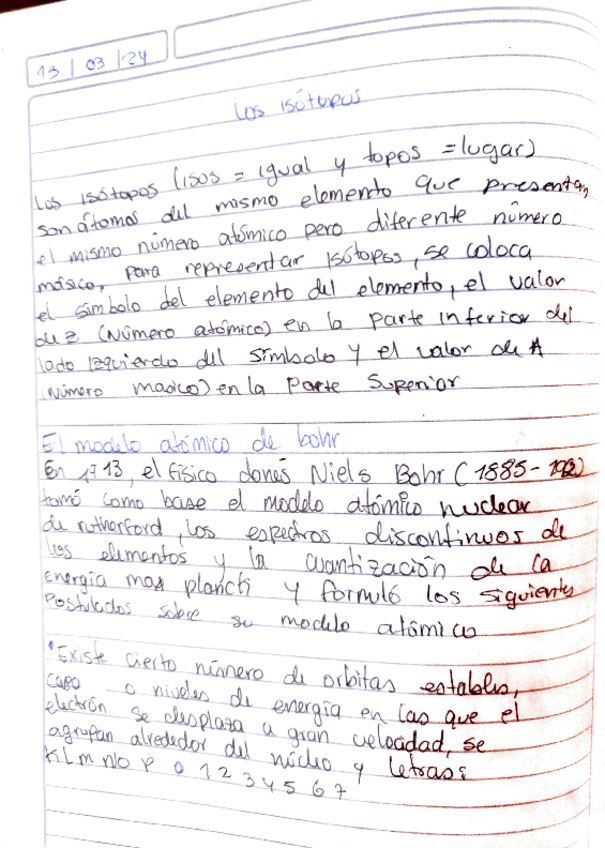 13 | 03 | 24
Los isótopos
Los isótopos (isos = igual y topos = lugar)
son átomos del mismo elemento que presentan,
el mismo número atómico pero diferente número
másico, para representar isótopos, se coloca
el símbolo del elemento del elemento, el valor
de z (Número atómico) en la parte inferior del
lado izquierdo del símbolo y el valor de A
(Número masico) en la Parte Superior
El modelo atómico de bohr
En 1913, el físico danés Niels Bohr (1885-
tomó como base el modelo atómico nuclear
de rutherford, los espectros discontinuos de
los elementos y la cuantización de la
energía max planck y formuló los siguientes
Postulados sobre su modelo atómico
•Existe cierto número de orbitas estables,
capa o niveles de energía en las que el
electrón se desplaza a gran velocidad, se
agrupan alrededor del núcleo y letras:
K L m N O P Q 1 2 3 4 5 6 7